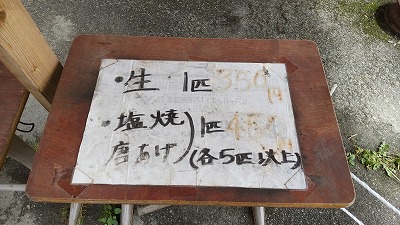 ・生 1匹 350円
・塩焼 唐あげ) 1匹 450円
(各5匹以上)